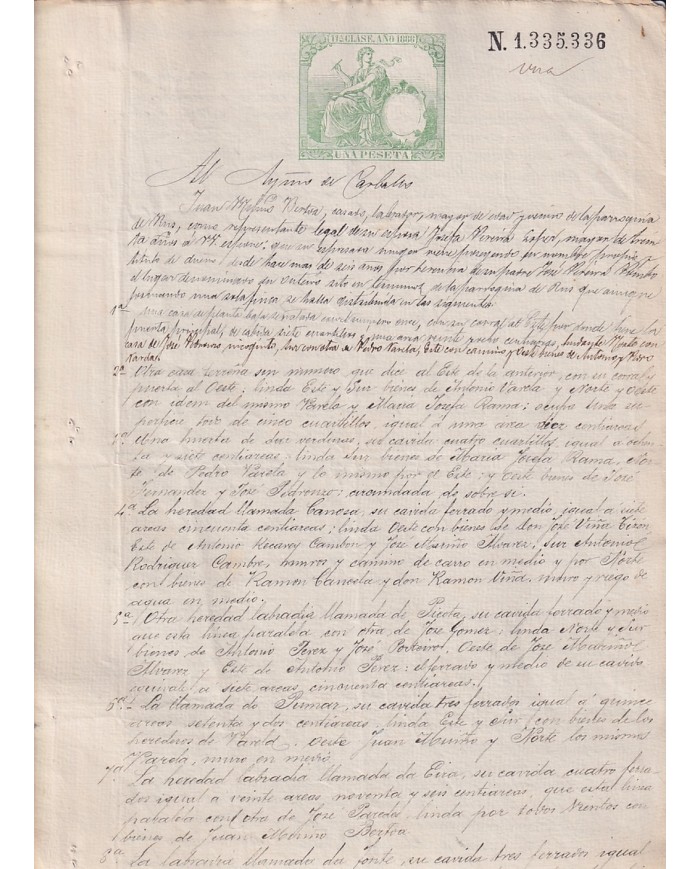 11ª CLASE. AÑO 1888
N. 1.335.336
UNA PESETA
Al Aymto de Carballo
Juan Mº Bertoa, casado, labrador, mayor de edad y vecino de la parroquia
de Rus, como representante legal de su esposa Josefa Pereira mayor de
años a V. expone: que su esposa viene poseyendo en nombre propio
titulo de dueño desde hace mas de seis años por herencia de su padre José Pereira
el lugar denominado sito en terminos de la parroquia de Rus que aunque
formando una sola finca se halla distribuida en las siguientes
1ª Una casa de planta baja señalada con el numero once, con su corral al Este por donde tiene la
puerta principal, de cabida siete cuartillos, igual a una area centiareas, linda Norte con
casa de José Sur con otra de Pedro Varela, Este con camino y Oeste bienes de Antonio y Pedro
Varela.
2ª Otra casa terrena sin numero, que dice al Este de la anterior, con su corral y
puerta al Oeste: linda Este y Sur bienes de Antonio Varela y Norte y Oeste
con idem del mismo Varela y Maria Josefa Rama: ocupa una su-
perficie todo de cinco cuartillos, igual á una area diez centiareas.
3ª Una huerta de dar verduras, su cavida cuatro cuartillos igual a ochen-
ta y siete centiareas: linda Sur bienes de Maria Josefa Rama, Nor-
te de Pedro Varela y lo mismo por el Este: y Oeste bienes de José
Fernandez y José Pedronzo: circundada de sobre si.
4ª La heredad llamada Canosa, su cavida ferrado y medio, igual a siete
areas cincuenta centiareas: linda Oeste con bienes de don José Viña
Este de Antonio Recarey Cambon y José Mariño Alvarez, Sur Antonio
Rodriguez Cambre, muros y camino de carro en medio y por Norte
con bienes de Ramon Canosa y don Ramon Viña, muro y riego de
agua en medio.
5ª Otra heredad labradia llamada de Picota, su cavida ferrado y medio
que esta linea paralela con otra de José Gomez: linda Norte y Sur
bienes de Antonio Perez y José Porteiro, Oeste de José Mariño
Alvarez y Este de Antonio Perez: el ferrado y medio de su cavida
equivale a siete areas cincuenta centiareas.
6ª La llamada de Pumar, su cavida tres ferrados igual á quince
areas setenta y dos centiareas, linda Este y Sur con bienes de los
herederos de Varela. Oeste Juan Muiño y Norte los mismos
Varela, muro en medio.
7ª La heredad labradia llamada da Eira, su cavida cuatro ferra-
dos igual a veinte areas, noventa y seis centiareas, que esta linea
paralela con otro de José Pareda, linda por todos vientos con
bienes de Juan Muiño Bertoa.
8ª La labradia llamada da fonte, su cavida tres ferrados igual